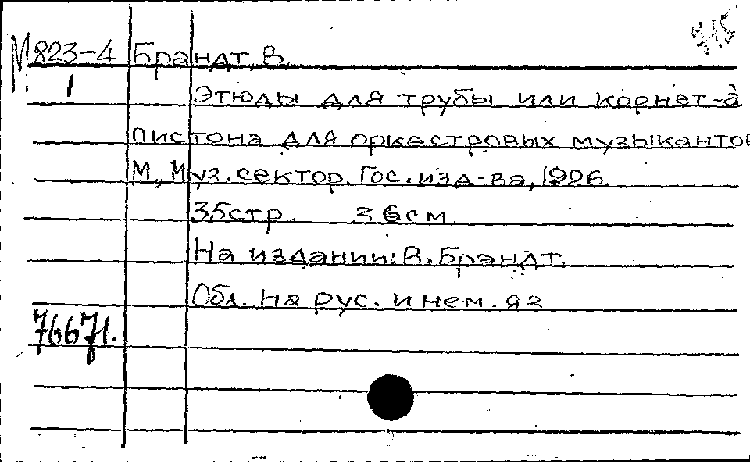 М823-4 Брандт, В.
1 Этюды для трубы или корнет-а
пистона для оркестровых музыкантов
М, Муз. сектор. Гос. изд-ва, 1926.
35стр. 26см.
На издании: В. Брандт.
Обл. на рус. и нем. яз
76671.